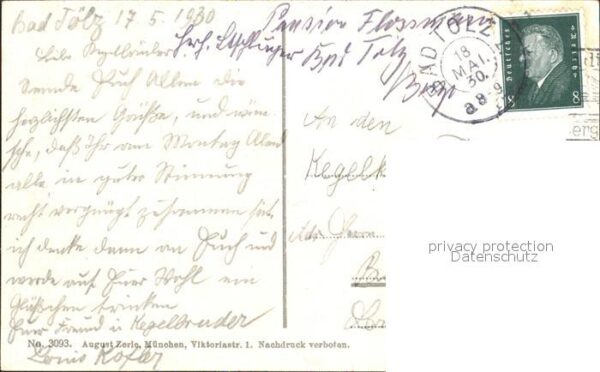 Bad Tölz 17 5. 1930
Pension Flossmann
Bad Tölz
Liebe Kegelbrüder
Sende Euch Allen die
herzlichsten Grüße, und wün-
sche, daß Ihr am Montag Abend
alle in guter Stimmung
recht vergnügt zusammen seit,
ich denke dann an Euch und
werde auf Euer Wohl ein
Gläschen trinken
Euer Freund u Kegelbruder
An den
BAD TÖLZ
18
MAI.
30.
8-9
a
Deutsches Reich
8 8
privacy protection
Datenschutz
No. 3093. August Zerle, München, Viktoriastr. 1. Nachdruck verboten.